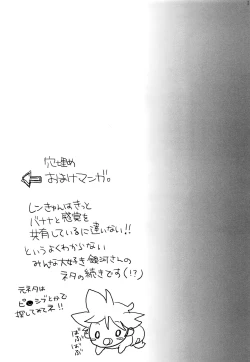 穴埋め
おまけマンガ。
レンきゅんはきっと
バナナと感覚を
共有しているに違いない!!
というよくわからない
みんな大好き銀河さんの
ネタの続きです(!?)
元ネタは
ピ●シブとかで
探してみてネ!!
ばぶばぶ